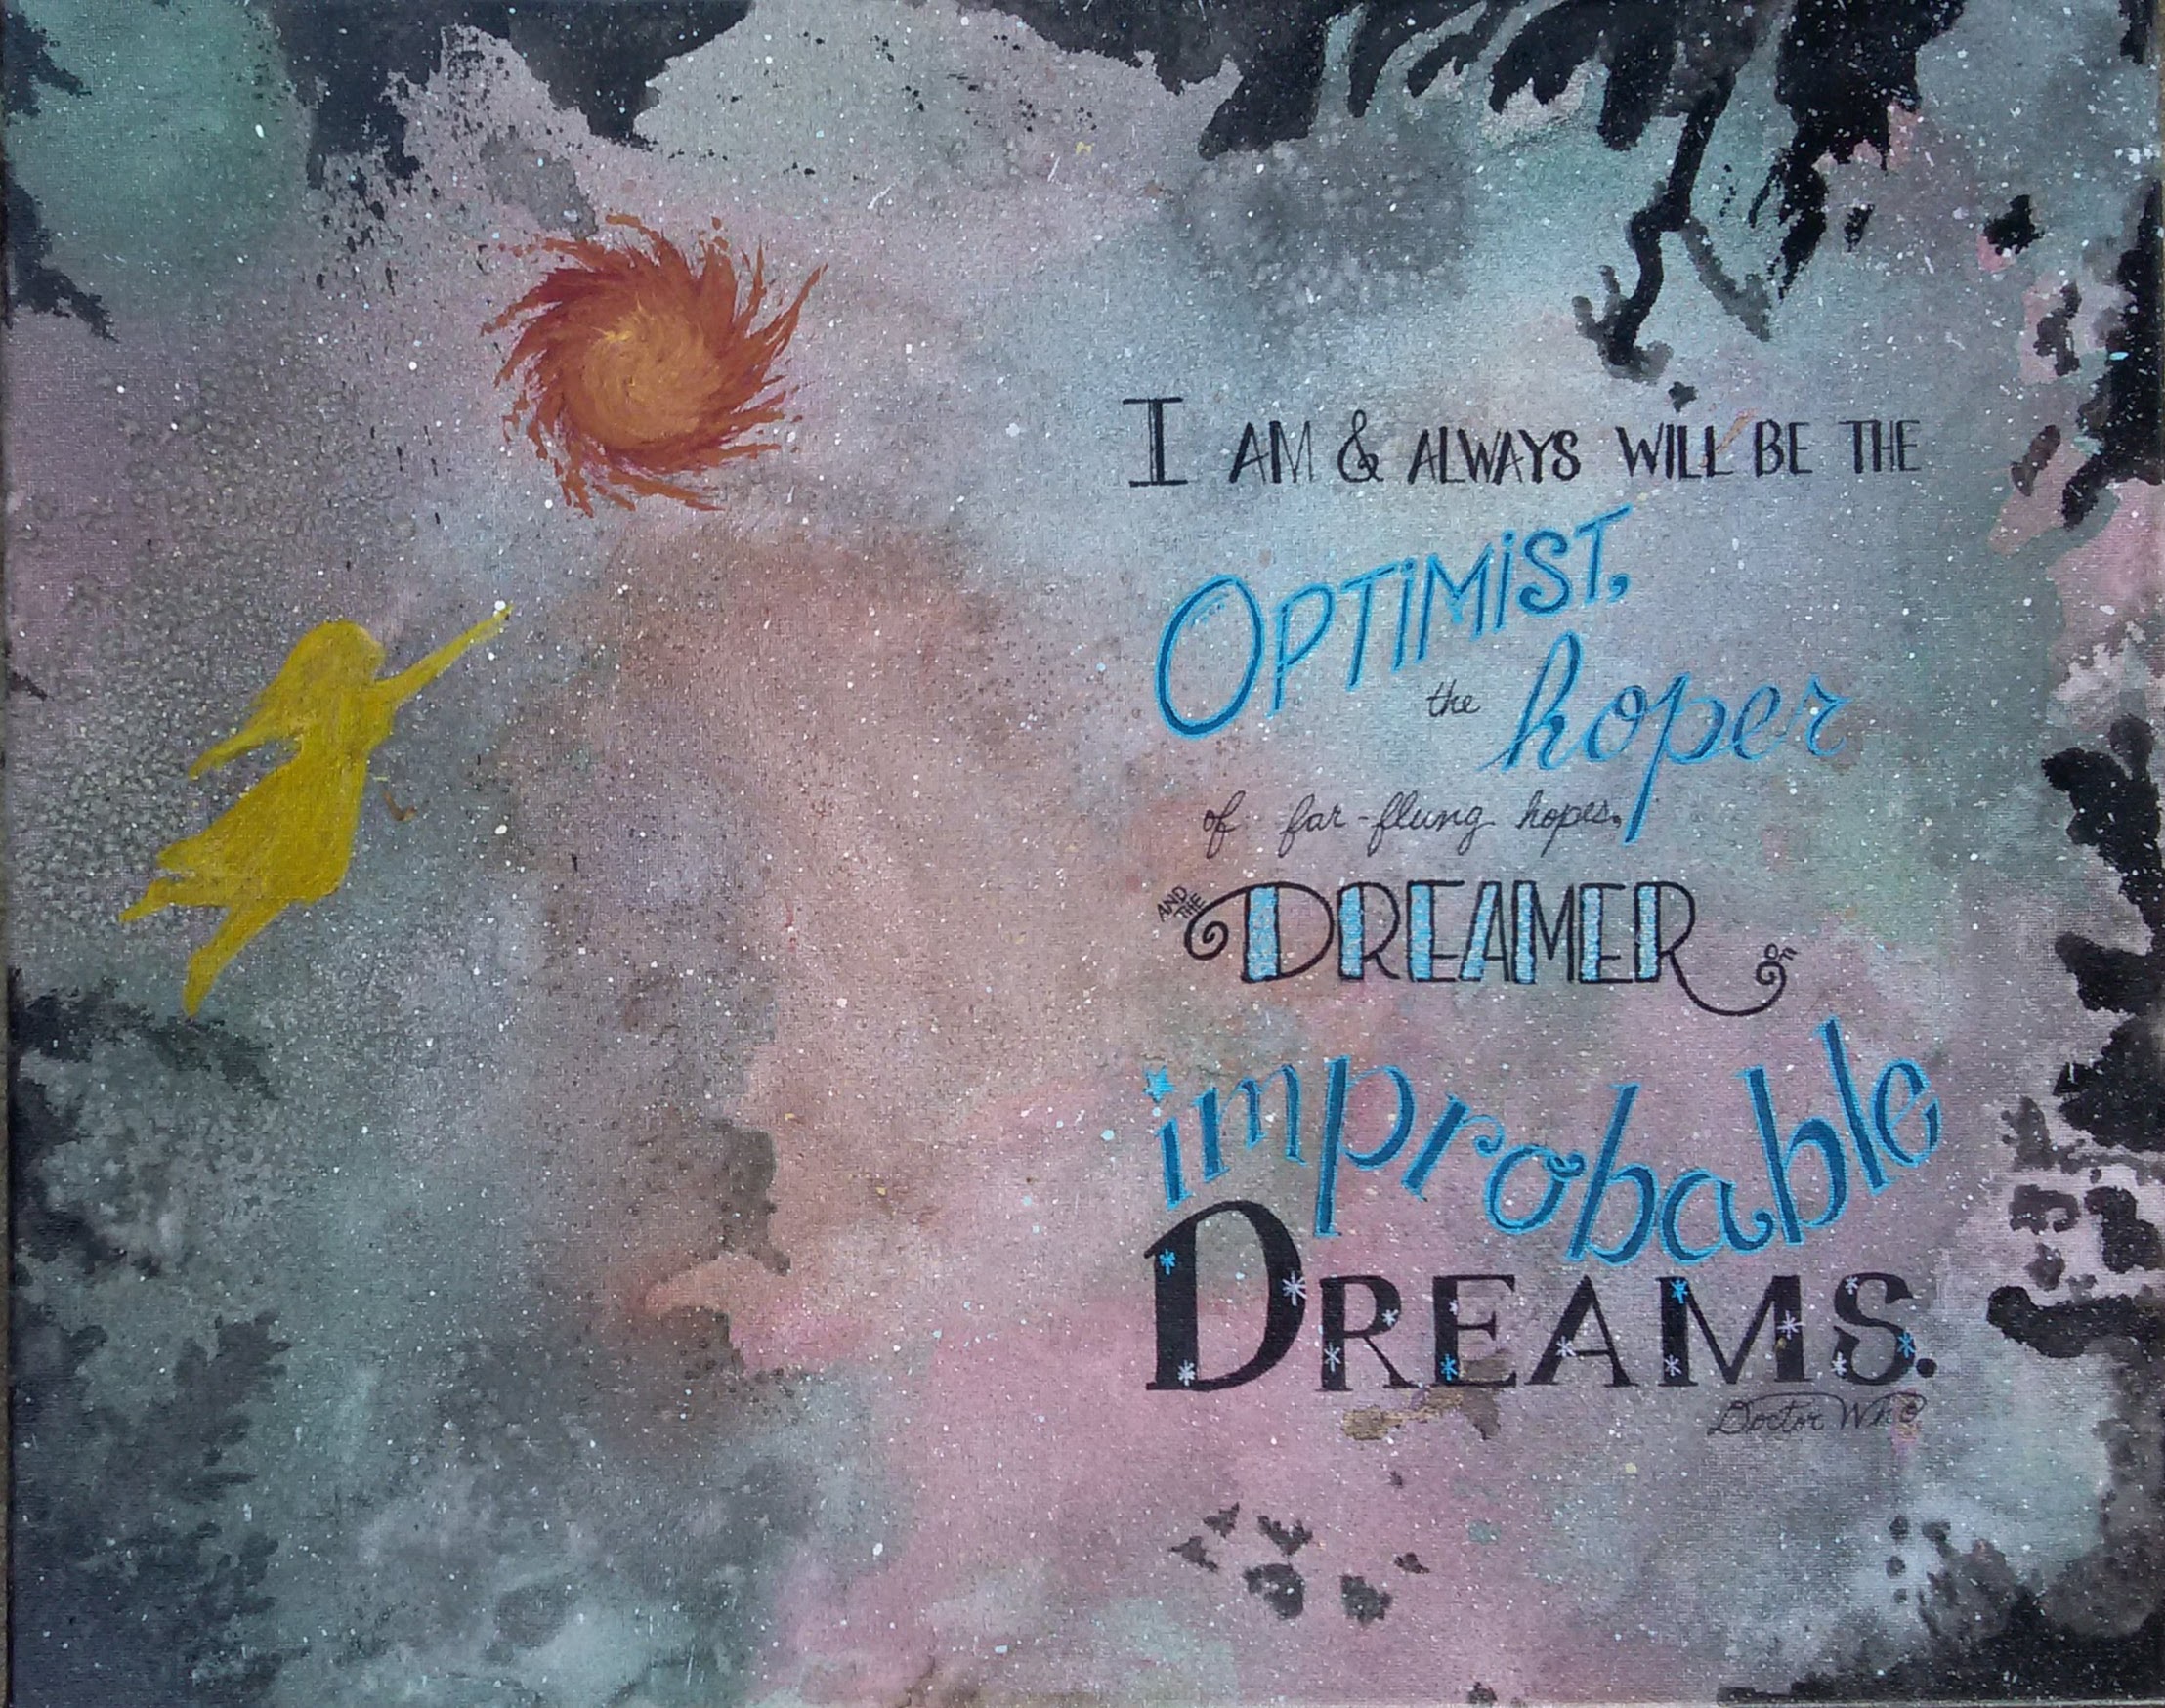 I AM & ALWAYS WILL BE THE
OPTIMIST,
the hoper
of far-flung hopes,
AND THE DREAMER OF
improbable
DREAMS.
Doctor Who